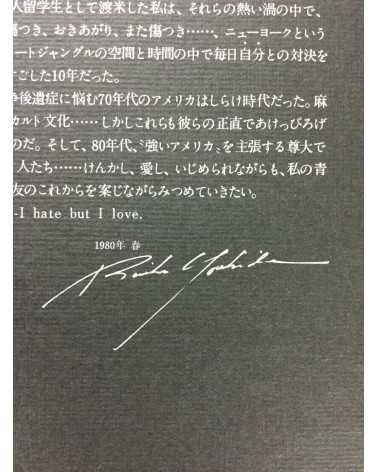 人留学生として渡米した私は、それらの熱い渦の中で、
傷つき、おきあがり、また傷つき……、ニューヨークという
ートジャングルの空間と時間の中で毎日自分との対決を
ごした10年だった。
後遺症に悩む70年代のアメリカはしらけ時代だった。麻
カルト文化……しかしこれらも彼らの正直であけっぴろげ
のだ。そして、80年代、〝強いアメリカ〟を主張する尊大で
人たち……けんかし、愛し、いじめられながらも、私の青
友のこれからを案じながらみつめていきたい。
-I hate but I love.
1980年 春
Ruiko Yoshida